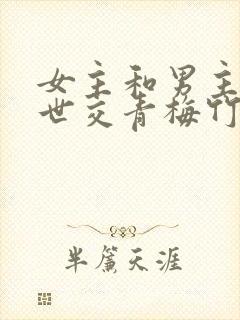 女主和男主
世交青梅竹
半帘天涯